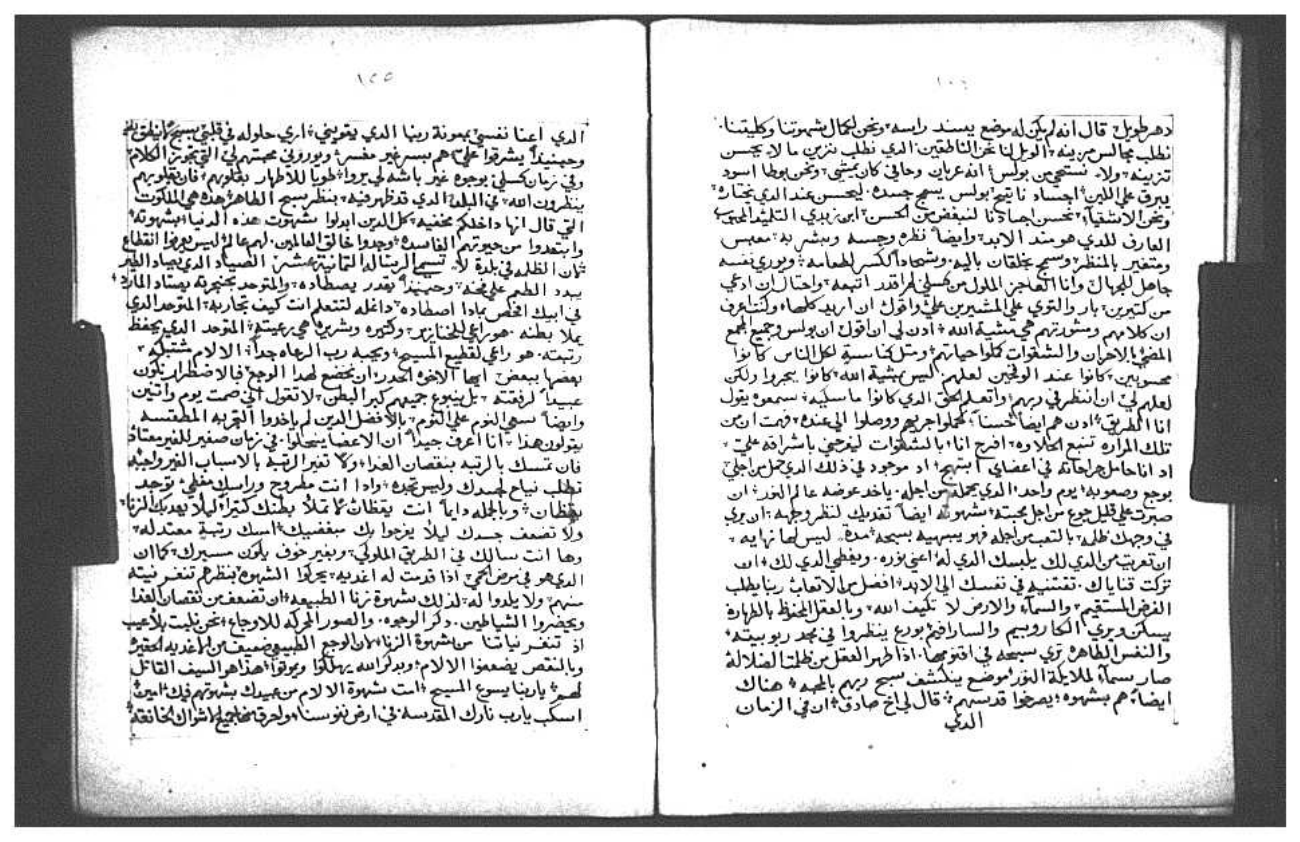 دهر طويل قال انه لم يكن له موضع يسند راسه ونحن لكمال شهوتنا وكليتنا
نطلب مجالس مزينه الويل لنا نحن الناطقين الدي نطلب نزين ما لا يحسن
تزينه ولا نستحي من بولس انه عريان وحافي كان يمشي ونحن بوطا اسود
يبرق علي اجساد نا بولس يسمج جسده ليحسن عند الدي يختاره
ونحن الاشقيا نحسن اجسادنا لنبغض من الحسن ابن زبدي التلميد
العارف للدي هو مند الابد وايضاً نظره وجسه وبشر به معبس
ومتغير بالمنظر وسمج بخلقات باليه وشحاداً لكسر لطعامه ويوري نفسه
جاهل للجهال وانا العاجز الملول من كسلي لم اقدر اتبعه واحتال ان ادعي
من كتيرين بار والتوي علي المشيرين علي واقول ان اريد كلهما وكنت اعرف
ان كلامهم ومشورتهم هي مشية الله ادن لي ان اقول ان بولس وجميع
بالاحزان والشقوات كملوا حياتهم ومتل كناسة لكل الناس كانوا
محسوبين كانوا عند لعلهم ليس بمشية الله كانوا يجروا ولكن
لعلهم لي ان انتظر في ربهم واتعلم الحق الدي كانوا ماسكيه سمعوه يقول
انا الطريق ادن هم ايضاً حسناً كملوا جريهم ووصلوا الي عنده فهمت ان من
تلك المراره تنبع الحلاوه افرح انا بالشقوات ليفرحني باشراقه علي
اد انا حامل جراحاته في اعضاي ابتهج اد موجود في دلك الدي حمل من اجلي
بوجع وصعوبه يوم واحد الدي يحمله من اجله ياخد عوضه عالم النور ان
صبرت علي قليل جوع من اجل محبته شهوته ايضاً تغديك لنظر وجهه ان يري
في وجهك ظلمه بالتعب من اجله فهو يبهيه بسبحه مدة ليس لها نهايه
ان تعريت من الدي لك يلبسك الدي له اعني نوره ويعطي الدي لك ان
تركت قناياك تقتنيه في نفسك الي الابد افضل من الاتعاب ربنا يطلب
الغرض المستقيم والسما والارض لا تكيف الله وبالعقل المحفوظ بالطهارة
يسكن ويري الكاروبيم والسارافيم بورع ينظروا في مجد ربوبيته
والنفس الطاهره تري سبحه في اقنومها اذا طهر العقل من ظلمة الضلالة
صار سماء لملايكة النور موضع ينكشف سبح ربهم بالمحبه هناك
ايضاً هم بشهوه يصرخوا قدسهم قال لي اخ صادق ان في الزمان
الدي
١٢٥
الدي اعنا نفسي بمعونة ربنا الدي يقويني اري حلوله في قلبي بسبح
وحينيداً يشرقوا علي هم بسر غير مفسر ويوروني محبتهم لي التي تجوز الكلام
وفي زمان كسلي بوجوه غير باشه لي يروا طوبا للاطهار بقلوبهم فان بقلوبهم
ينظرون الله في البلد الدي قد ظهر فيه بنظر بسبح الطاهر هده هي الملكوت
التي قال انها داخلكم مخفيه كل الدين ابدلوا شهوت هده الدنيا بشهوته
وابتعدوا من حيوتهم الفاسده وجدوا خالق العالمين لهم عالم ليس يعرفوا انقطاع
من الظلمه في بلدة لا تسمي الرسالة التمانية عشر الصياد الدي يصاد الطير
يبدد الطعم علي فخه وحينيداً يقدر يصطاده والمتوحد بحنجرته يصتاد المارد
في ابيك افحص بمادا اصطاده داغله لتتعلم انت كيف تحاربه المتوحد الدي
يملا بطنه هو راعي للخنازير وكتيره وشريره هي رعيته المتوحد الدي يحفظ
رتبته هو راعي لقطيع المسيح ويحبه رب الرعاه جداً الالام شتبكه
بعضها ببعض ايها الاخوه احدر ان نخضع لهدا الوجع فبالاضطرار نكون
عبيداً لرفقته بل ينبوع جميعهم كبر البطن لا تقول اني صمت يوم واتنين
وايضاً نسهي النوم علي النوم بالافضل الدين لم ياخدوا التجربه
يقولون هدا انا اعرف جيداً ان الاعضا ينحلوا في زمان صغير للغير معتاد
فان تمسك بالرتبه بنقصان الغدا ولا تغير الرتبه بالاسباب الغير واجبه
تطلب نياح لجسدك وليس تجده وادا انت مطروح وراسك مغلي توجد
يقظان وبالجمله دايماً انت يقظان لا تملا بطنك كتيراً ليلا يعدبك الزنا
ولا تضعف جسدك ليلا يفرحوا بك مبغضيك امسك رتبة معتدله
وها انت سالك في الطريق الملوكي وبغير خوف يكون مسيرك كما ان
الدي هو في مرض الحمي ادا قدمت له اغديه يحركوا الشهوه بنظرهم تنفر نيته
منهم ولا يلدوا له لدلك شهوة زنا الطبيعه ان تضعف من نقصان الغدا
ويحضروا الشياطين دكر الوجوه والصور المحركه للاوجاع نحن
اد تنفر نياتنا من شهوة الزنا لان الوجع الطبيعي ضعيف من الاغديه الحقيره
وبالنقص يضعفوا الالام وبدكر الله يهلكوا ويموتوا هدا هو السيف القاتل
لهم ياربنا يسوع المسيح امت شهوة الالام من عبيدك بشهوتهم فيك امين
اسكب يارب نارك المقدسة في ارض نفوسنا الخانقه